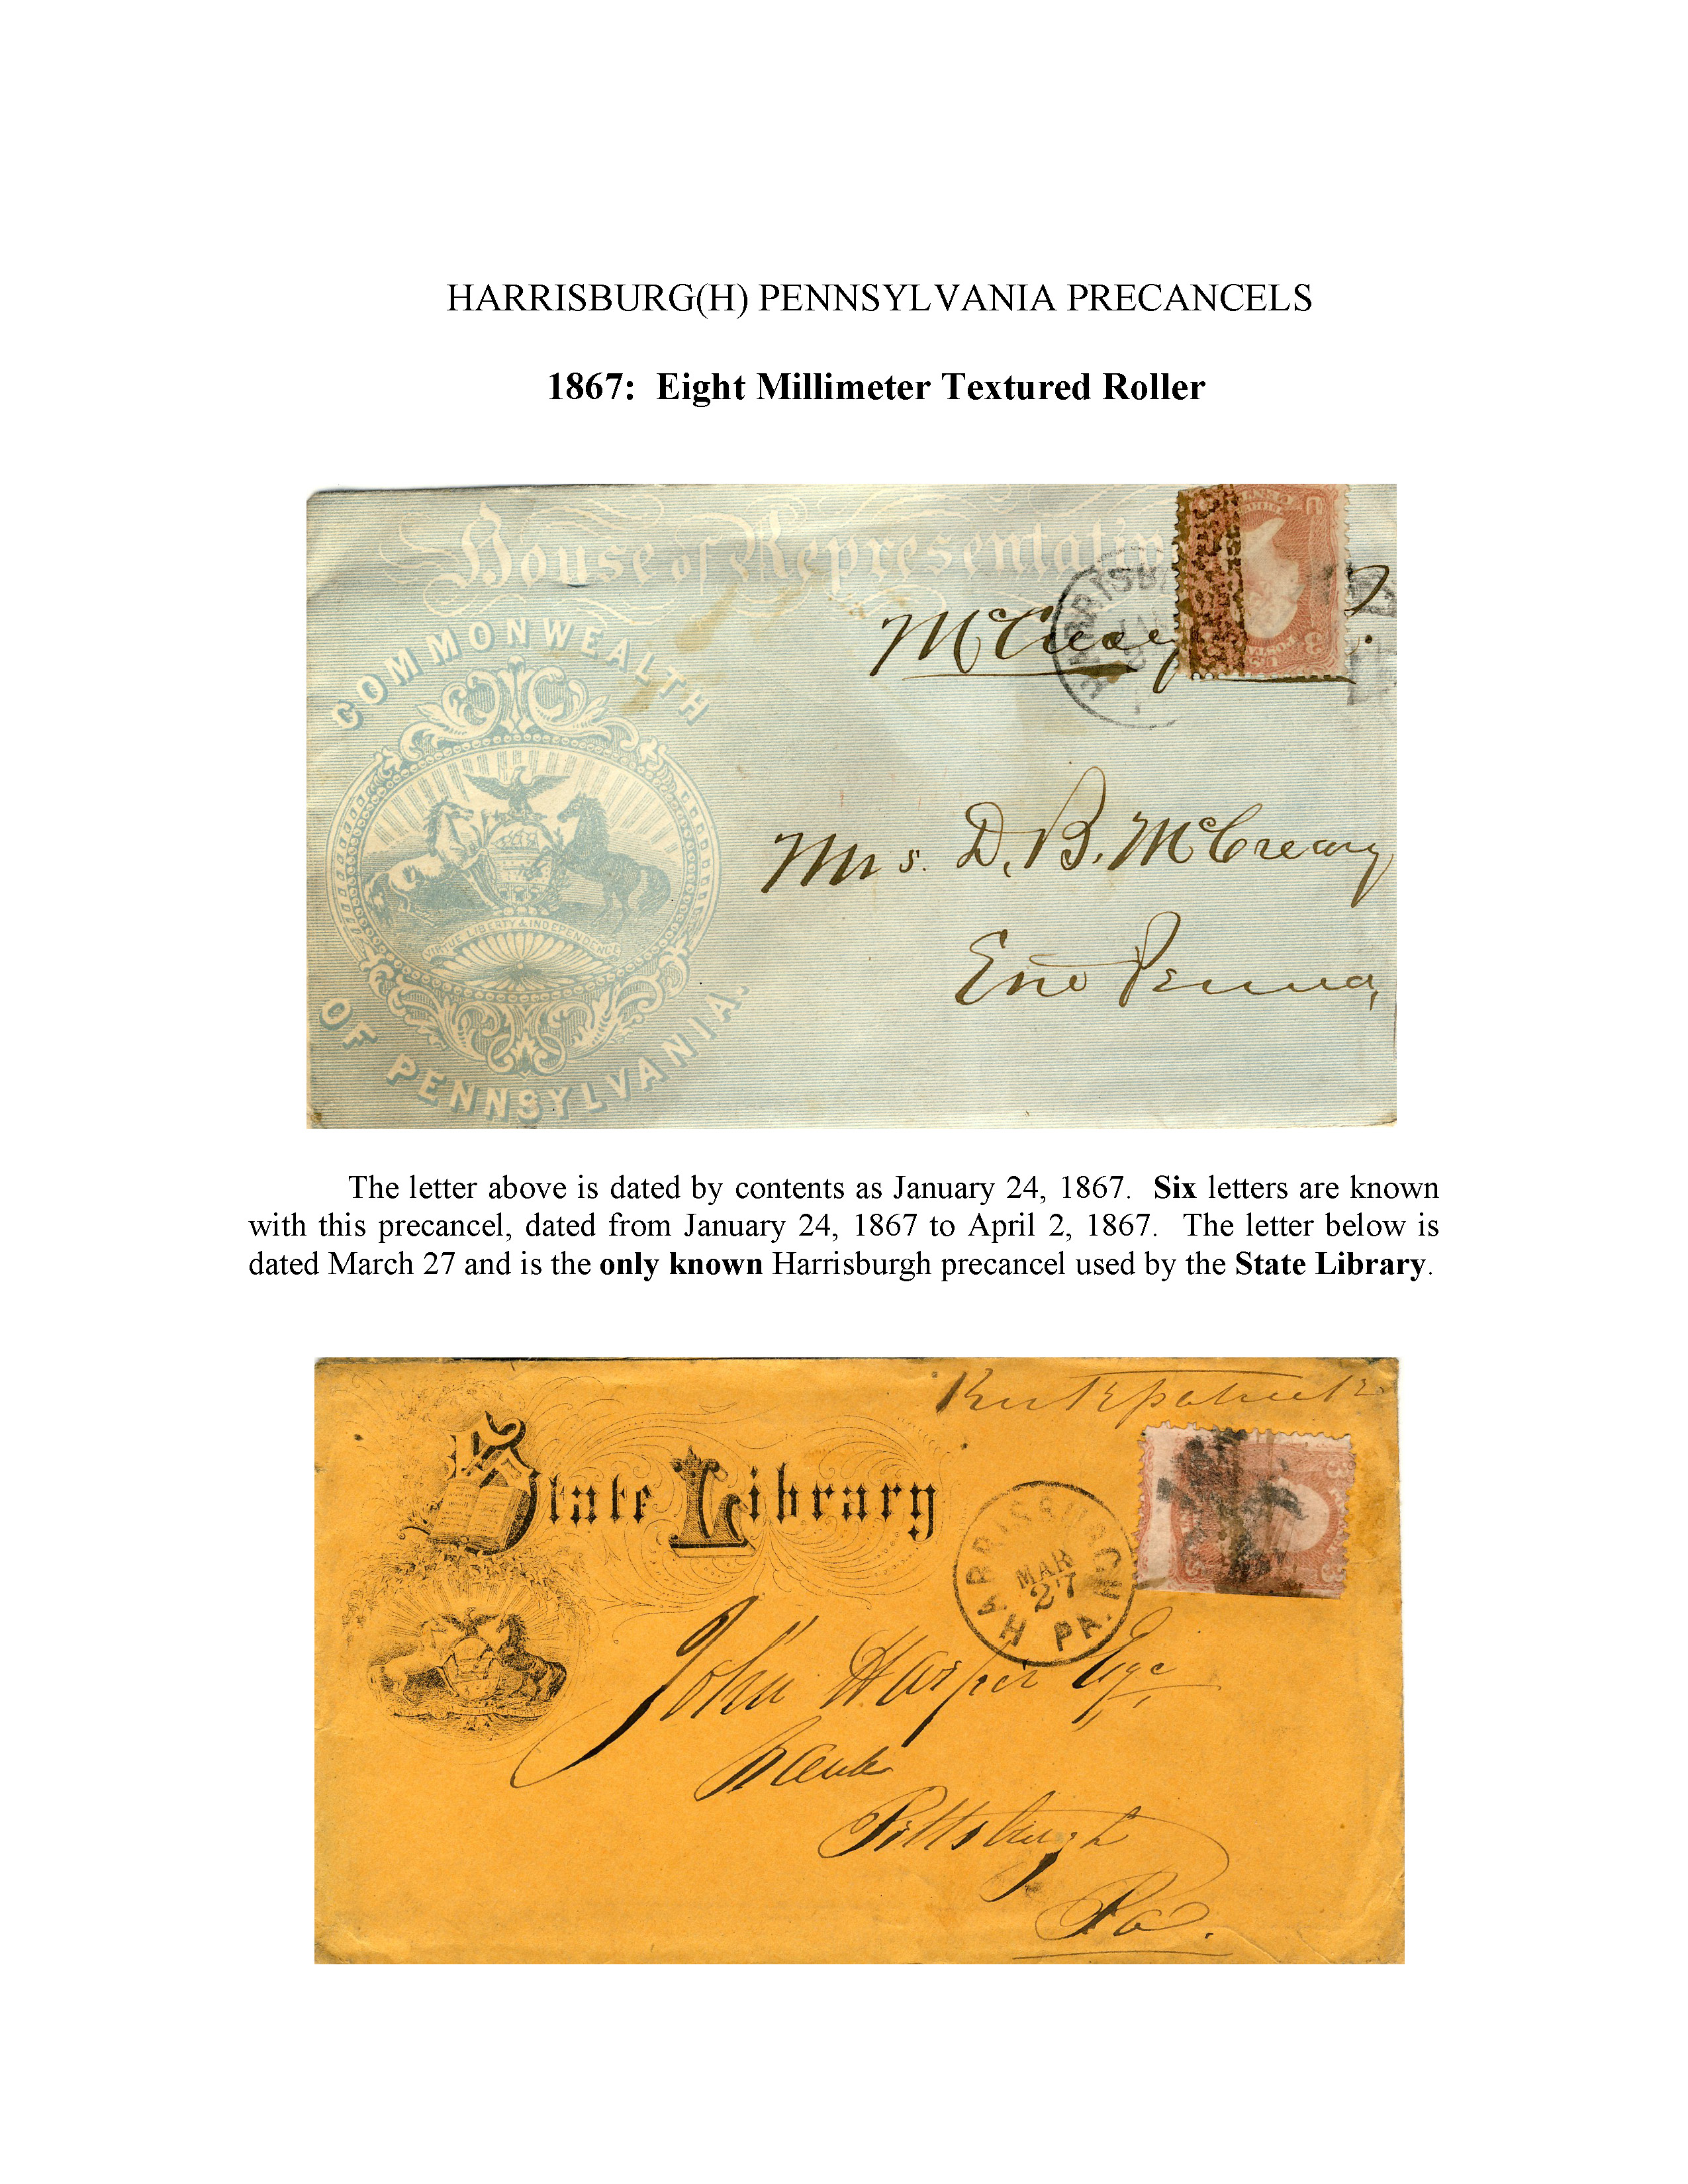 HARRISBURG(H) PENNSYLVANIA PRECANCELS
1867: Eight Millimeter Textured Roller
House of Representativ
McCreary
HARRISB
JAN
COMMONWEALTH
VIRTUE LIBERTY & INDEPENDENCE
OF PENNSYLVANIA.
U 3
U.S. POSTAGE
Mrs. D. B. McCreary
Erie Penna,
The letter above is dated by contents as January 24, 1867. Six letters are known
with this precancel, dated from January 24, 1867 to April 2, 1867. The letter below is
dated March 27 and is the only known Harrisburgh precancel used by the State Library.
Kirkpatrick
State Library
HARRISBURGH PA.
MAR
27
3
John Harper Esqe
Bank
Pittsburgh
Pa.